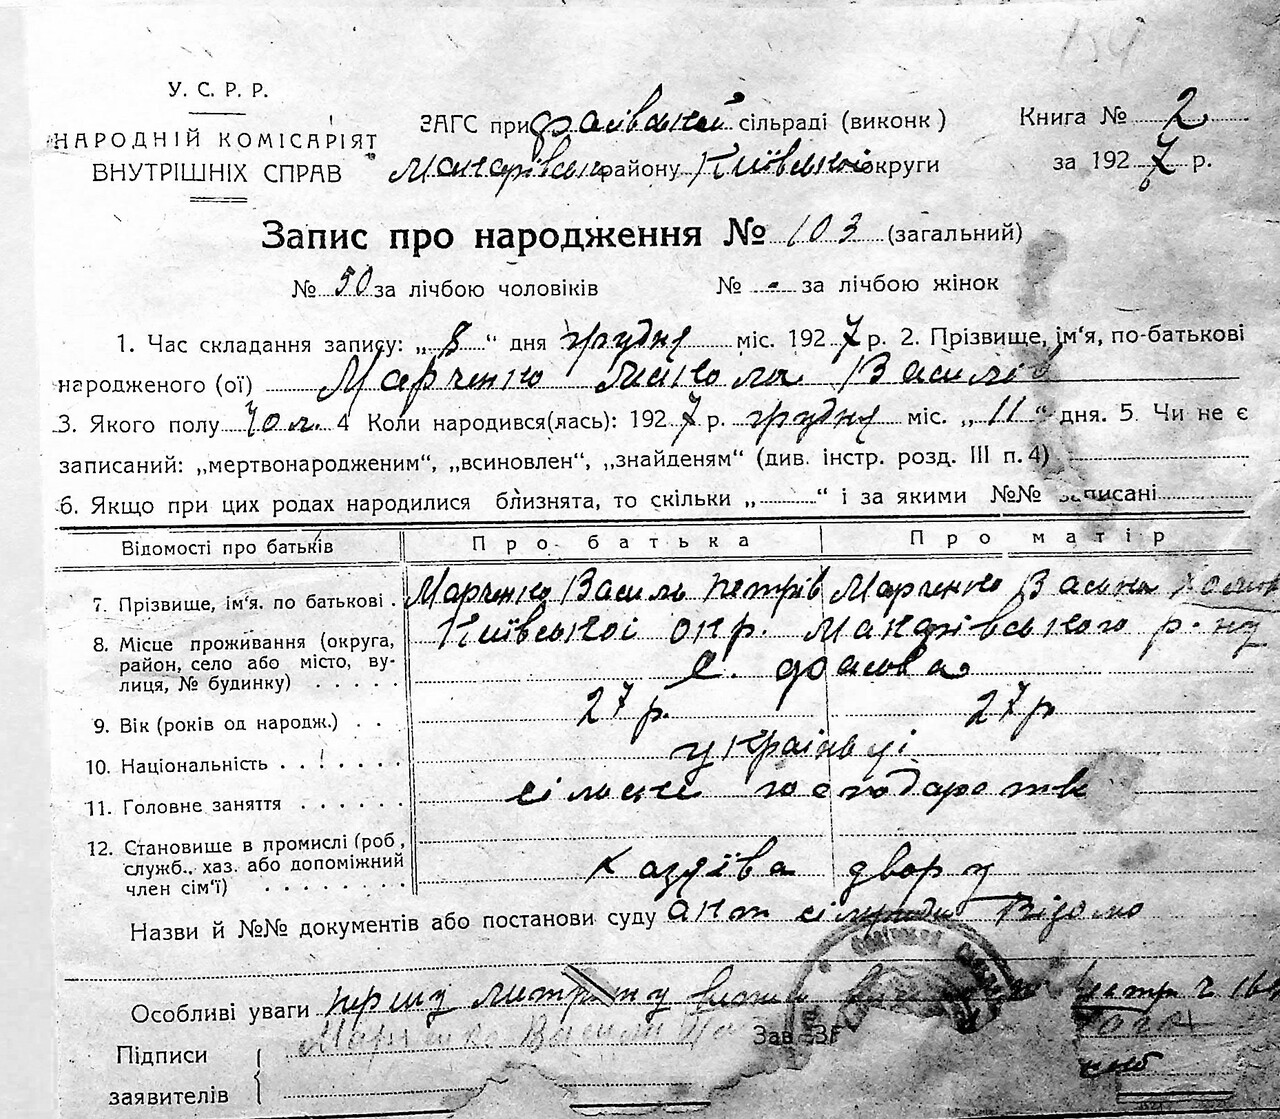 У. С. Р. Р.
НАРОДНІЙ КОМІСАРІЯТ
ВНУТРІШНІХ СПРАВ
ЗАГС при Фасівській сільраді (виконк)
Макарівськ району Київської округи
Книга № 2
за 1927 р.
Запис про народження № 103 (загальний)
№ 50 за лічбою чоловіків № - за лічбою жінок
1. Час складання запису: „8“ дня грудня міс. 1927 р. 2. Прізвище, ім‘я, по-батькові
народженого (ої) Марченко Микола Василів
3. Якого полу чол. 4 Коли народився(лась): 1927 р. грудня міс. „11“ дня. 5. Чи не є
записаний: „мертвонародженим“, „всиновлен“, „знайденям“ (див. інстр. розд. III п. 4)
6. Якщо при цих родах народилися близнята, то скільки „ “ і за якими №№ записані
Відомості про батьків Про батька Про матір
7. Прізвище, ім‘я. по батькові. Марченко Василь Петрів Марченко
8. Місце проживання (округа, район, село або місто, вулиця, № будинку) Київської окр. Макарівського р-ну
с. Фасова
9. Вік (років од народж.) 27 р. 27 р
10. Національність українці
11. Головне заняття сільське господарство
12. Становище в промислі (роб, служб., хаз. або допоміжний член сім‘ї) хазяїва двору
Назви й №№ документів або постанови суду акт сільради Відомо
Особливі уваги першу
Підписи
заявителів
Марченко Василь
Зав ЗГ